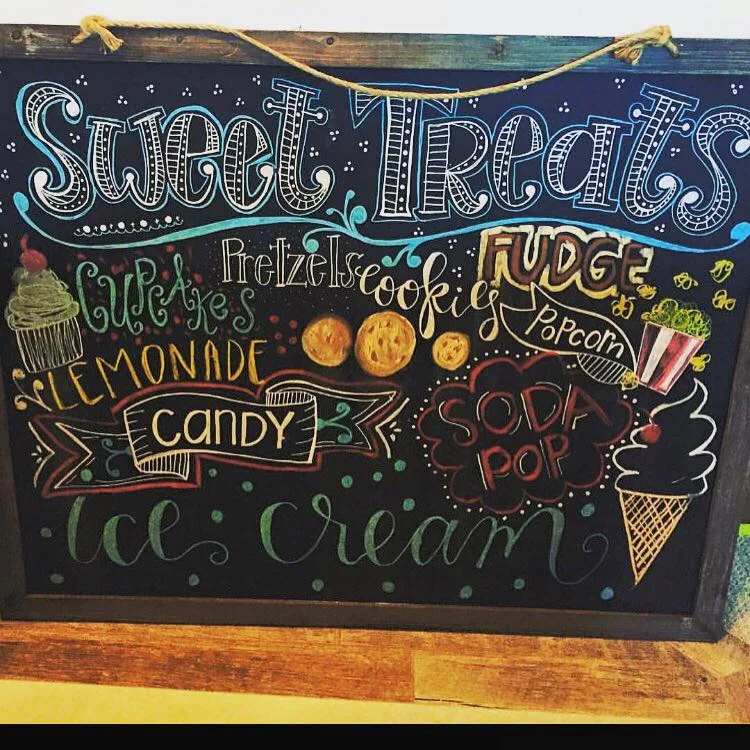 Sweet Treats
CUPCAKES
Pretzels
cookies
FUDGE
PoPcorn
LEMONADE
CANDY
SODA
POP
ice cream